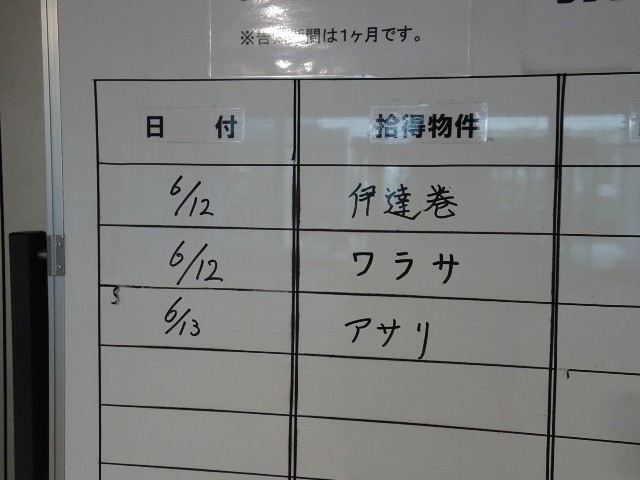 ※告知期間は1ヶ月です。
日　付　拾得物件
6/12　伊達巻
6/12　ワラサ
6/13　アサリ